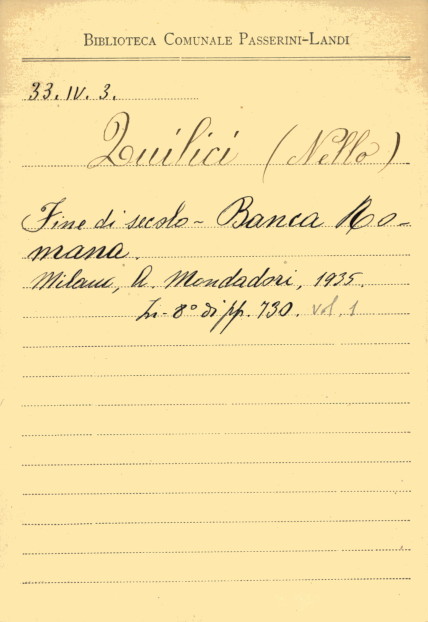 BIBLIOTECA COMUNALE PASSERINI-LANDI
33. IV. 3.
Quilici (Nello)
Fine di secolo - Banca Ro-
mana.
Milano, A. Mondadori, 1935.
In-8° di pp. 730. vol. 1